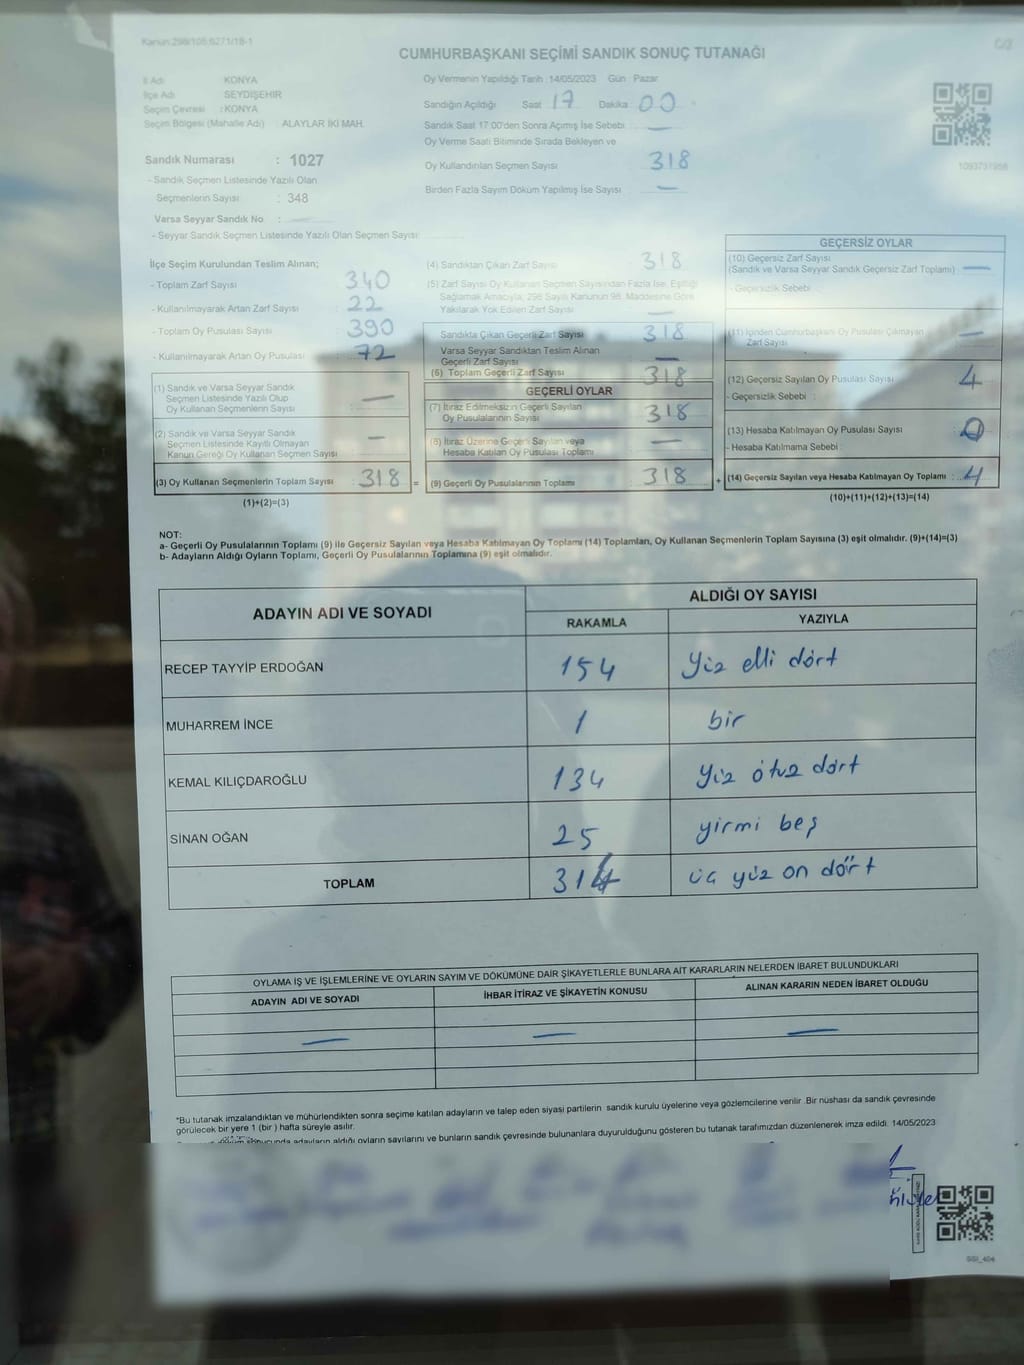 Kanun:298/105,6271/18-1
CUMHURBAŞKANI SEÇİMİ SANDIK SONUÇ TUTANAĞI
İl Adı : KONYA
İlçe Adı : SEYDİŞEHİR
Seçim Çevresi : KONYA
Seçim Bölgesi (Mahalle Adı) : ALAYLAR İKİ MAH.
Sandık Numarası : 1027
- Sandık Seçmen Listesinde Yazılı Olan
Seçmenlerin Sayısı : 348
Varsa Seyyar Sandık No :
- Seyyar Sandık Seçmen Listesinde Yazılı Olan Seçmen Sayısı:
Oy Vermenin Yapıldığı Tarih :14/05/2023 Gün : Pazar
Sandığın Açıldığı Saat 17 Dakika 00
Sandık Saat 17:00'den Sonra Açımış İse Sebebi : —
Oy Verme Saati Bitiminde Sırada Bekleyen ve
Oy Kullandırılan Seçmen Sayısı 318
Birden Fazla Sayım Döküm Yapılmış İse Sayısı : —
1093731956
İlçe Seçim Kurulundan Teslim Alınan;
- Toplam Zarf Sayısı : 340
- Kullanılmayarak Artan Zarf Sayısı : 22
- Toplam Oy Pusulası Sayısı : 390
- Kullanılmayarak Artan Oy Pusulası : 72
(1) Sandık ve Varsa Seyyar Sandık
Seçmen Listesinde Yazılı Olup
Oy Kullanan Seçmenlerin Sayısı : —
(2) Sandık ve Varsa Seyyar Sandık
Seçmen Listesinde Kayıtlı Olmayan
Kanun Gereği Oy Kullanan Seçmen Sayısı : —
(3) Oy Kullanan Seçmenlerin Toplam Sayısı : 318 =
(1)+(2)=(3)
(4) Sandıktan Çıkan Zarf Sayısı 318
(5) Zarf Sayısı Oy Kullanan Seçmen Sayısından Fazla İse, Eşitliği
Sağlamak Amacıyla, 298 Sayılı Kanunun 98. Maddesine Göre
Yakılarak Yok Edilen Zarf Sayısı —
Sandıkta Çıkan Geçerli Zarf Sayısı : 318
Varsa Seyyar Sandıktan Teslim Alınan
Geçerli Zarf Sayısı —
(6) Toplam Geçerli Zarf Sayısı : 318
GEÇERLİ OYLAR
(7) İtiraz Edilmeksizin Geçerli Sayılan
Oy Pusulalarının Sayısı : 318
(8) İtiraz Üzerine Geçerli Sayılan veya
Hesaba Katılan Oy Pusulası Toplamı : —
(9) Geçerli Oy Pusulalarının Toplamı : 318 +
GEÇERSİZ OYLAR
(10) Geçersiz Zarf Sayısı
(Sandık ve Varsa Seyyar Sandık Geçersiz Zarf Toplamı) : —
- Geçersizlik Sebebi :
(11) İçinden Cumhurbaşkanı Oy Pusulası Çıkmayan
Zarf Sayısı —
(12) Geçersiz Sayılan Oy Pusulası Sayısı : 4
- Geçersizlik Sebebi :
(13) Hesaba Katılmayan Oy Pusulası Sayısı : 0
- Hesaba Katılmama Sebebi :
(14) Geçersiz Sayılan veya Hesaba Katılmayan Oy Toplamı : 4
(10)+(11)+(12)+(13)=(14)
NOT:
a- Geçerli Oy Pusulalarının Toplamı (9) ile Geçersiz Sayılan veya Hesaba Katılmayan Oy Toplamı (14) Toplamları, Oy Kullanan Seçmenlerin Toplam Sayısına (3) eşit olmalıdır. (9)+(14)=(3)
b- Adayların Aldığı Oyların Toplamı, Geçerli Oy Pusulalarının Toplamına (9) eşit olmalıdır.
ADAYIN ADI VE SOYADI ALDIĞI OY SAYISI
RAKAMLA YAZIYLA
RECEP TAYYİP ERDOĞAN 154 Yüz elli dört
MUHARREM İNCE 1 bir
KEMAL KILIÇDAROĞLU 134 Yüz otuz dört
SİNAN OĞAN 25 yirmi beş
TOPLAM 314 üç yüz on dört
OYLAMA İŞ VE İŞLEMLERİNE VE OYLARIN SAYIM VE DÖKÜMÜNE DAİR ŞİKAYETLERLE BUNLARA AİT KARARLARIN NELERDEN İBARET BULUNDUKLARI
ADAYIN ADI VE SOYADI İHBAR İTİRAZ VE ŞİKAYETİN KONUSU ALINAN KARARIN NEDEN İBARET OLDUĞU
— — —
*Bu tutanak imzalandıktan ve mühürlendikten sonra seçime katılan adayların ve talep eden siyasi partilerin sandık kurulu üyelerine veya gözlemcilerine verilir .Bir nüshası da sandık çevresinde
görülecek bir yere 1 (bir ) hafta süreyle asılır.
adayların aldığı oyların sayılarını ve bunların sandık çevresinde bulunanlara duyurulduğunu gösteren bu tutanak tarafımızdan düzenlenerek imza edildi. 14/05/2023
SSI_404